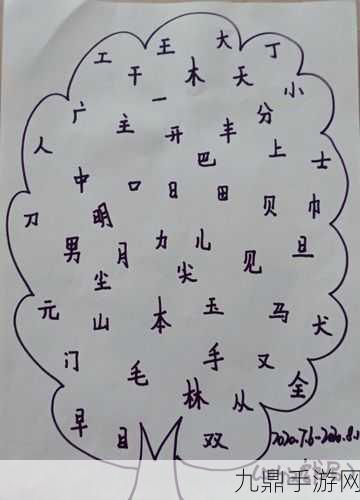 工 王 大 丁
干 木 天 小
广 主 一 开 丰 分
人 巴 上 士
中 口 日 田 贝 巾
刀 明
男 月 力 儿 见 旦
尘 尖
元 山 本 玉 马 犬
门 毛 手 又
林 从 全
早 目 双
2020.7.6-2020.8.1
九鼎手游网